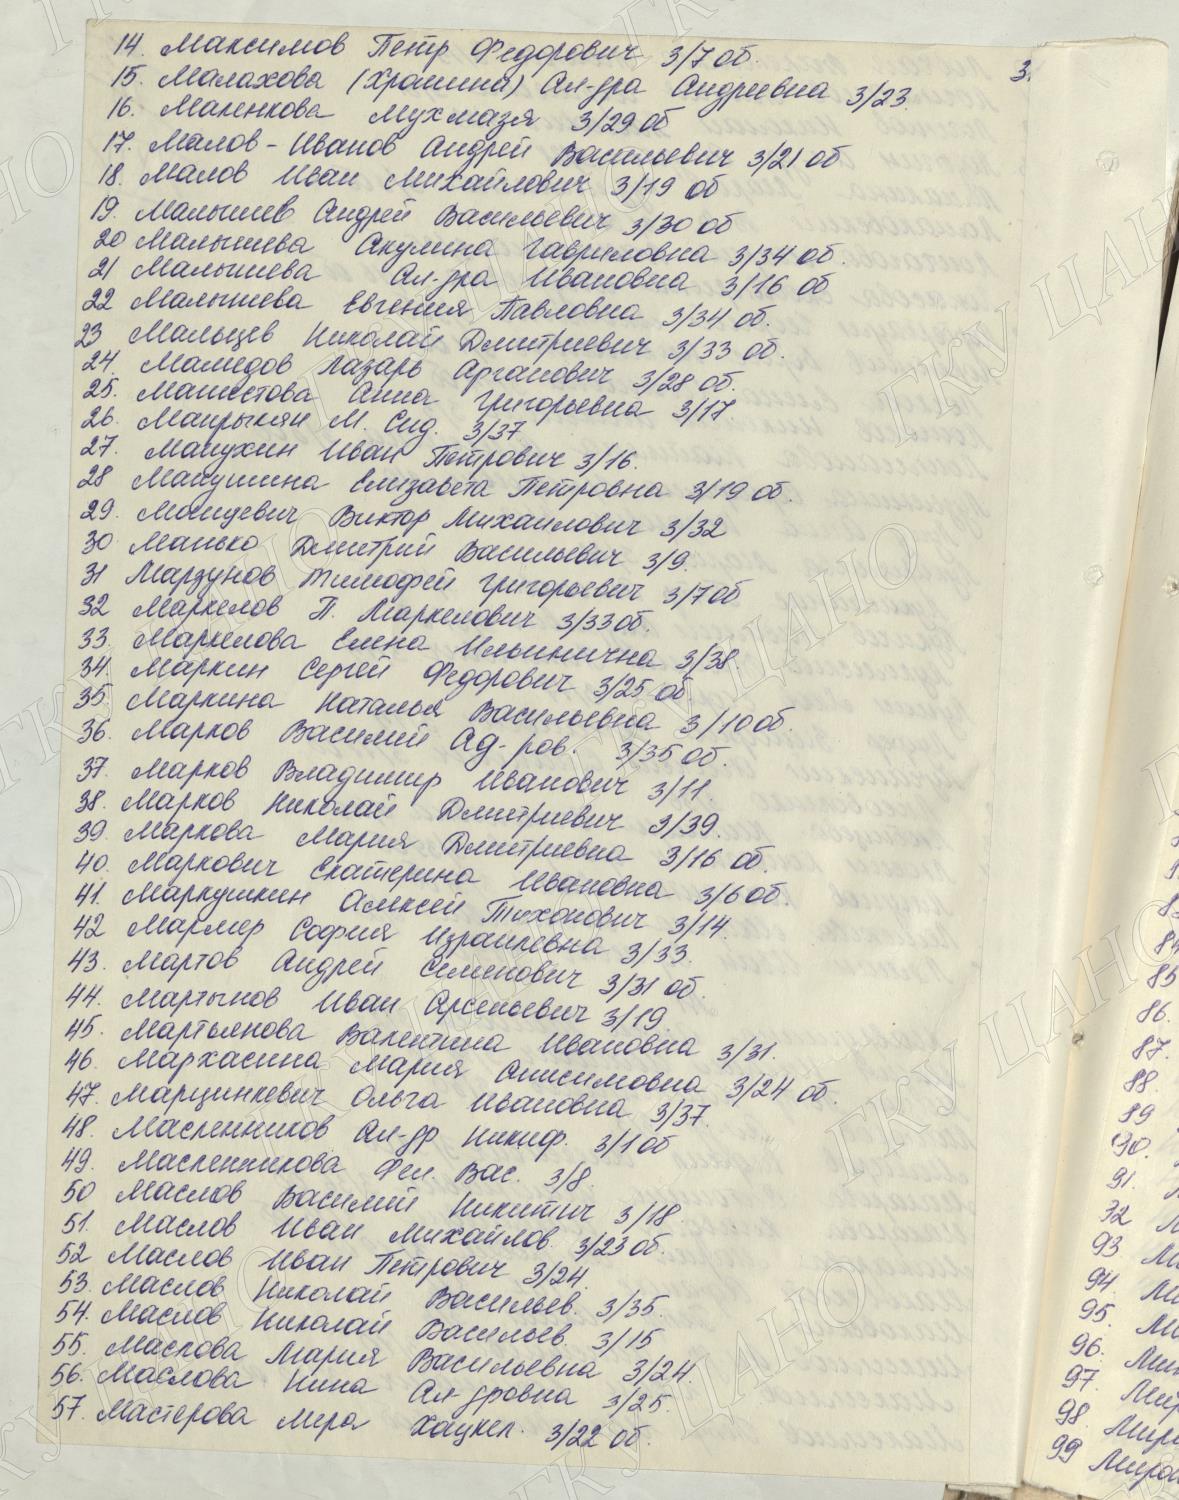 3.
14. Максимов Петр Федорович 3/7 об.
15. Малахова (Храмина) Ал-дра Андреевна 3/23.
16. Маленкова Мухмазя 3/29 об
17. Малов-Иванов Андрей Васильевич 3/21 об
18. Малов Иван Михайлович 3/19 об
19. Малышев Андрей Васильевич 3/30 об
20 Малышева Акулина Гавриловна 3/34 об.
21 Малышева Ал-дра Ивановна 3/16 об
22 Малышева Евгения Павловна 3/34 об.
23 Мальцев Николай Дмитриевич 3/33 об.
24. Мамедов Лазарь Арганович 3/28 об.
25. Мамистова Анна Григорьевна 3/17.
26. Манрыкян М. Сид. 3/37
27. Манухин Иван Петрович 3/16.
28 Манушина Елизавета Петровна 3/19 об.
29. Манцевич Виктор Михайлович 3/32
30 Манько Дмитрий Васильевич 3/9.
31 Марзунов Тимофей Григорьевич 3/7 об
32 Маркелов П. Маркелович 3/33 об.
33. Маркелова Елена Ильинична 3/38.
34. Маркин Сергей Федорович 3/25 об
35. Маркина Наталья Васильевна 3/10 об.
36. Марков Василий Ад-ров. 3/35 об.
37. Марков Владимир Иванович 3/11.
38. Марков Николай Дмитриевич 3/39.
39. Маркова Мария Дмитриевна 3/16 об.
40. Маркович Екатерина Ивановна 3/6 об.
41. Маркушкин Алексей Тихонович 3/14.
42 Мармер София Израилевна 3/33.
43. Мартов Андрей Семенович 3/31 об.
44. Мартынов Иван Арсеньевич 3/19
45. Мартьянова Валентина Ивановна 3/31.
46. Мархасина Мария Анисимовна 3/24 об.
47. Марцинкевич Ольга Ивановна 3/37.
48. Масленников Ал-др Никиф. 3/1 об
49. Масленникова Фен. Вас. 3/8.
50 Маслов Василий Никитич 3/18.
51. Маслов Иван Михайлов. 3/23 об.
52 Маслов Иван Петрович 3/24.
53. Маслов Николай Васильев. 3/35.
54. Маслов Николай Васильев. 3/15
55. Маслова Мария Васильевна 3/24.
56. Маслова Нина Ал-дровна 3/25.
57. Мастерова Мера Хацкел. 3/22 об.
85
86.
87.
88.
89
90.
91.
92
93
94.
95.
96.
97.
98.
99
ГКУ ЦАНО